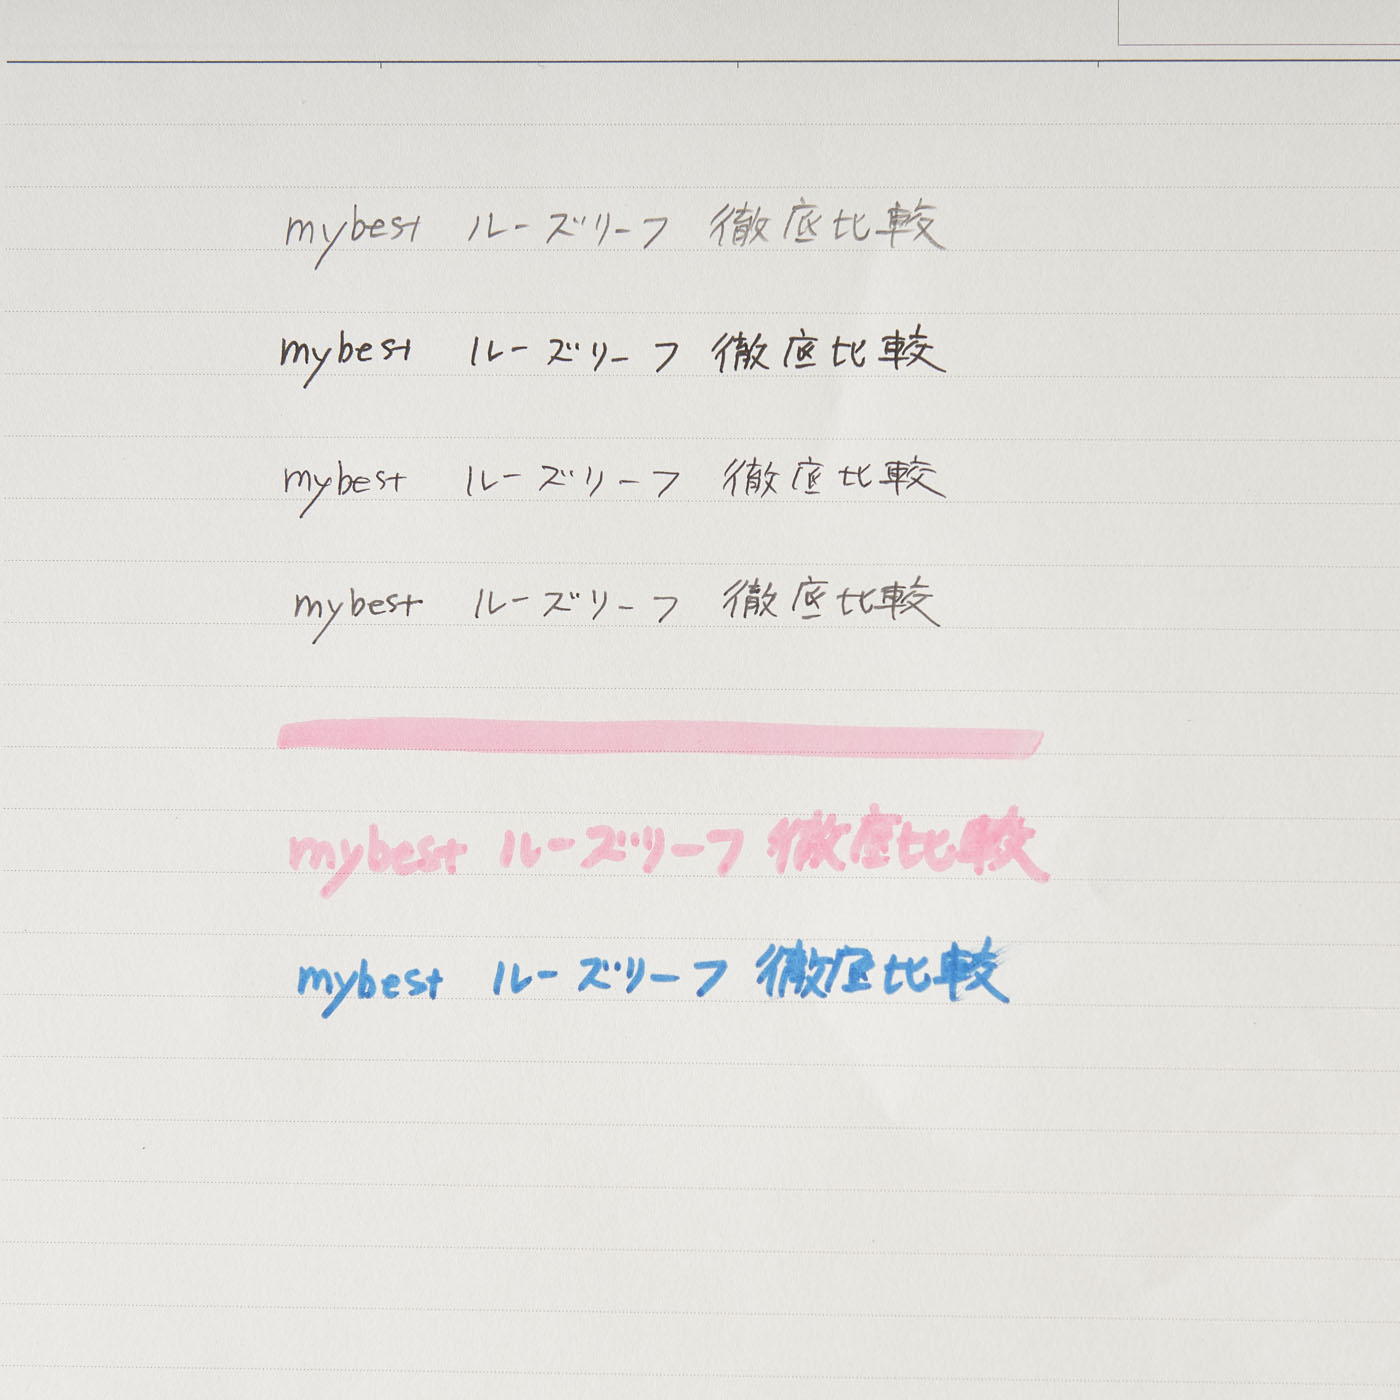 mybest ルーズリーフ 徹底比較
mybest ルーズリーフ 徹底比較
mybest ルーズリーフ 徹底比較
mybest ルーズリーフ 徹底比較
mybest ルーズリーフ 徹底比較
mybest ルーズリーフ 徹底比較